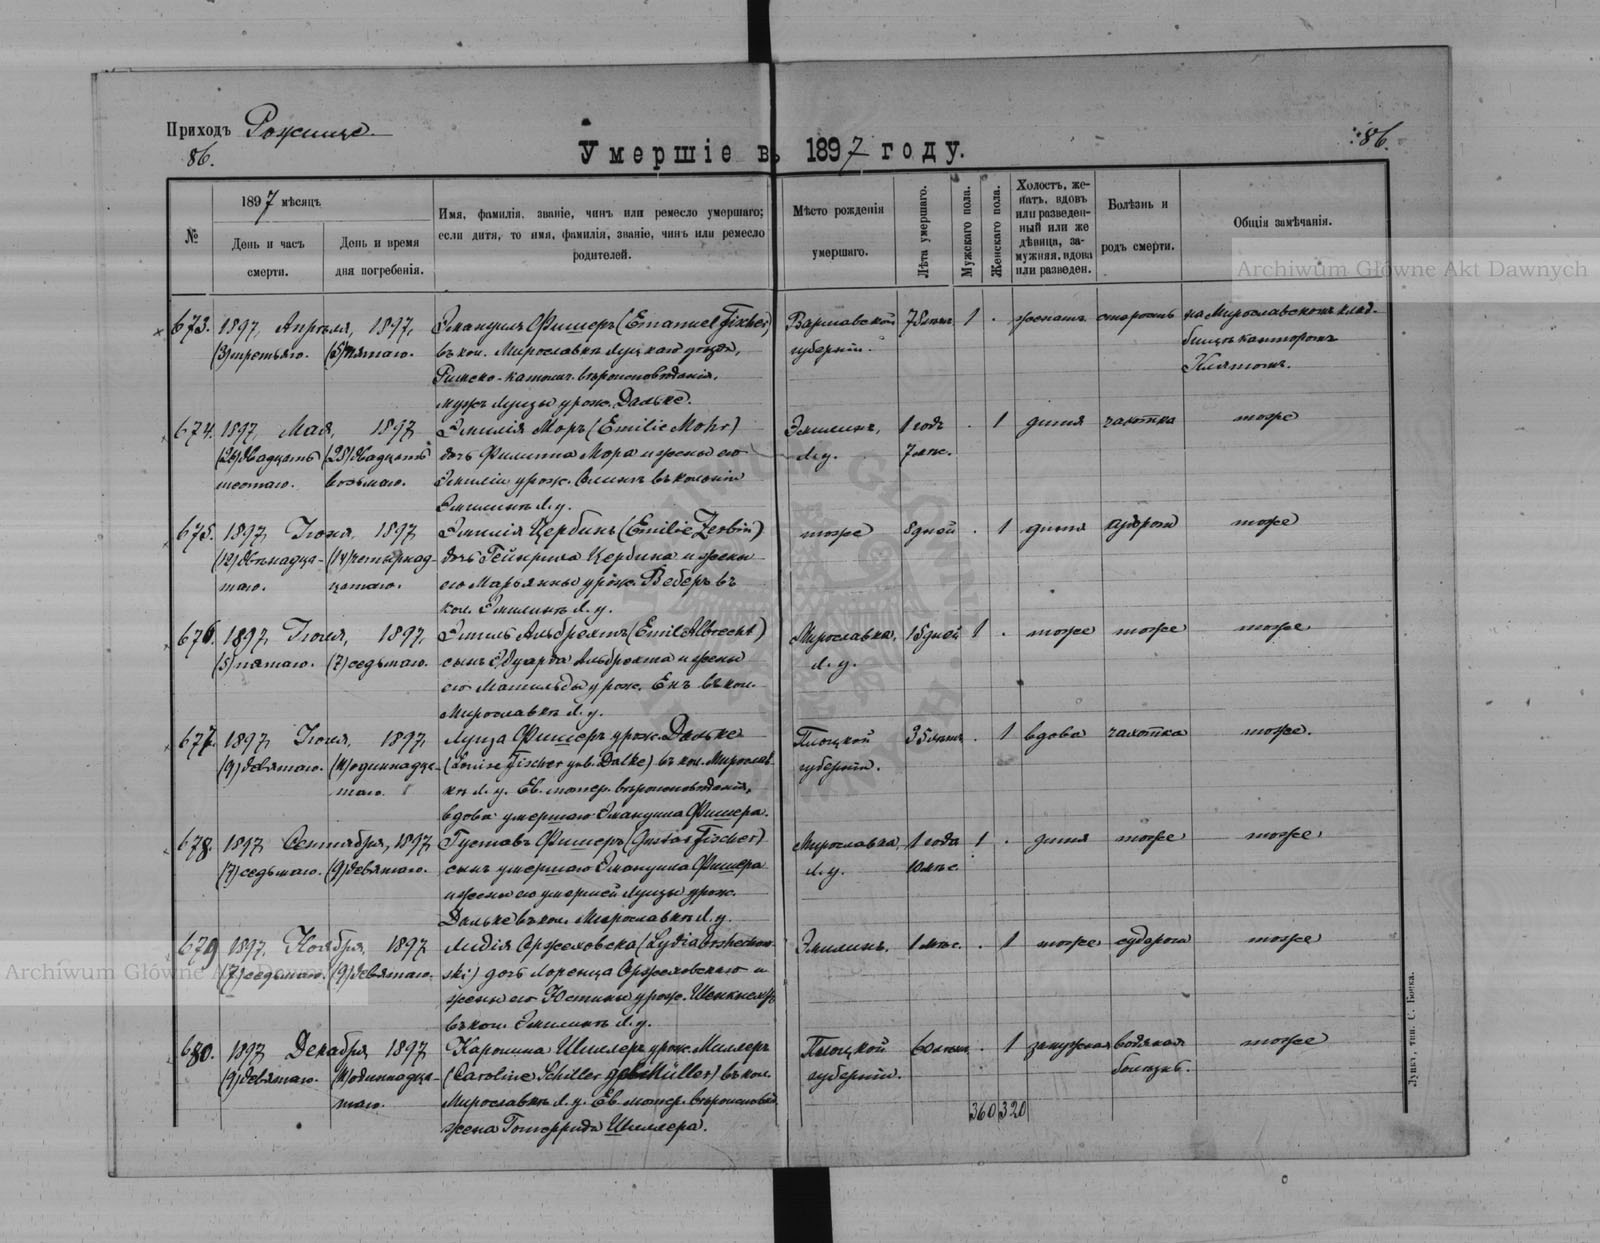 Приходъ Рожище
86.
86.
Умершіе въ 1897 году.
№
1897 мѣсяцъ
День и часъ смерти.
День и время дня погребенія.
Имя, фамилія, званіе, чинъ или ремесло умершаго;
если дитя, то имя, фамилія, званіе, чинъ или ремесло
родителей.
Мѣсто рожденія
умершаго.
Лѣта умершаго.
Мужскаго пола.
Женскаго пола.
Холостъ, же-
натъ, вдовъ
или разведен-
ный или же
дѣвица, за-
мужняя, вдова
или разведен.
Болѣзнь и
родъ смерти.
Общія замѣчанія.
673. 1897, Апрѣля, 1897, Эмануилъ Фишеръ (Emanuel Fischer) Варшавской 78 лѣтъ 1 . женатъ старость на Мирославскомъ клад-
(3) третьяго. (5) пятаго. въ кол. Мирославкѣ Луцкаго уѣзда, губерніи. бищѣ канторомъ
Римско-катол. вѣроисповѣданія,
мужъ Луизы урож. Дальке.
674. 1897, Мая, 1897, Эмилія Моръ (Emilie Mohr) Эмилинъ, 1 годъ . 1 дитя чахотка тоже
(26) двадцать (28) двадцать дочь Филиппа Мора и жены его Л. у. 7 мѣс.
шестаго. восьмаго. Эмиліи урож. въ колоніи
Эмилинѣ Л. у.
675. 1897, Іюня, 1897, Эмилія Цербинъ (Emilie Zerbin) тоже 8 дней . 1 дитя судороги тоже
(12) двѣнадца- (14) четырнад- дочь Гейнриха Цербина и жены
таго. цатаго. его Марьянны урож. Веберъ въ
кол. Эмилинѣ Л. у.
676. 1897, Іюля, 1897, Эмиль Альбрехтъ (Emil Albrecht) Мирославка, 15 дней 1 . тоже тоже тоже
(5) пятаго. (7) седьмаго. сынъ Эдуарда Альбрехта и жены Л. у.
его Матильды урож. въ кол.
Мирославкѣ Л. у.
677. 1897, Іюля, 1897, Луиза Фишеръ урож. Дальке Плоцкой 35 лѣтъ . 1 вдова чахотка тоже.
(9) девятаго. (11) одиннадца- (Louise Fischer geb. Dalke) въ кол. Мирослав- губерніи.
таго. кѣ Л. у. Ев. лютер. вѣроисповѣданія,
вдова умершаго Эмануила Фишера.
678. 1897, Сентября, 1897, Густавъ Фишеръ (Gustav Fischer) Мирославка, 1 года 1 . дитя тоже тоже
(7) седьмаго. (9) девятаго. сынъ умершаго Эмануила Фишера Л. у. 10 мѣс.
и жены его умершей Луизы урож.
Дальке въ кол. Мирославкѣ Л. у.
679. 1897, Ноября, 1897, Лидія Оржеховска (Lydia Orzhechow- Эмилинъ. 1 мѣс. . 1 тоже судороги тоже
(7) седьмаго. (9) девятаго. ski) дочь Лоренца Оржеховскаго и
жены его Юстины урож.
въ кол. Эмилинѣ Л. у.
680. 1897, Декабря, 1897, Каролина Шиллеръ урож. Миллеръ Плоцкой 60 лѣтъ . 1 замужняя водяная тоже
(9) девятаго. (11) одиннадца- (Caroline Schiller geb. Müller) въ кол. губерніи. болѣзнь.
таго. Мирославкѣ Л. у. Ев. лютер. вѣроисповѣд.
жена Готфрида Шиллера.
360 320
Луцкъ, тип. С. Бонка.
Archiwum Główne Akt Dawnych
Archiwum Główne Akt Dawnych